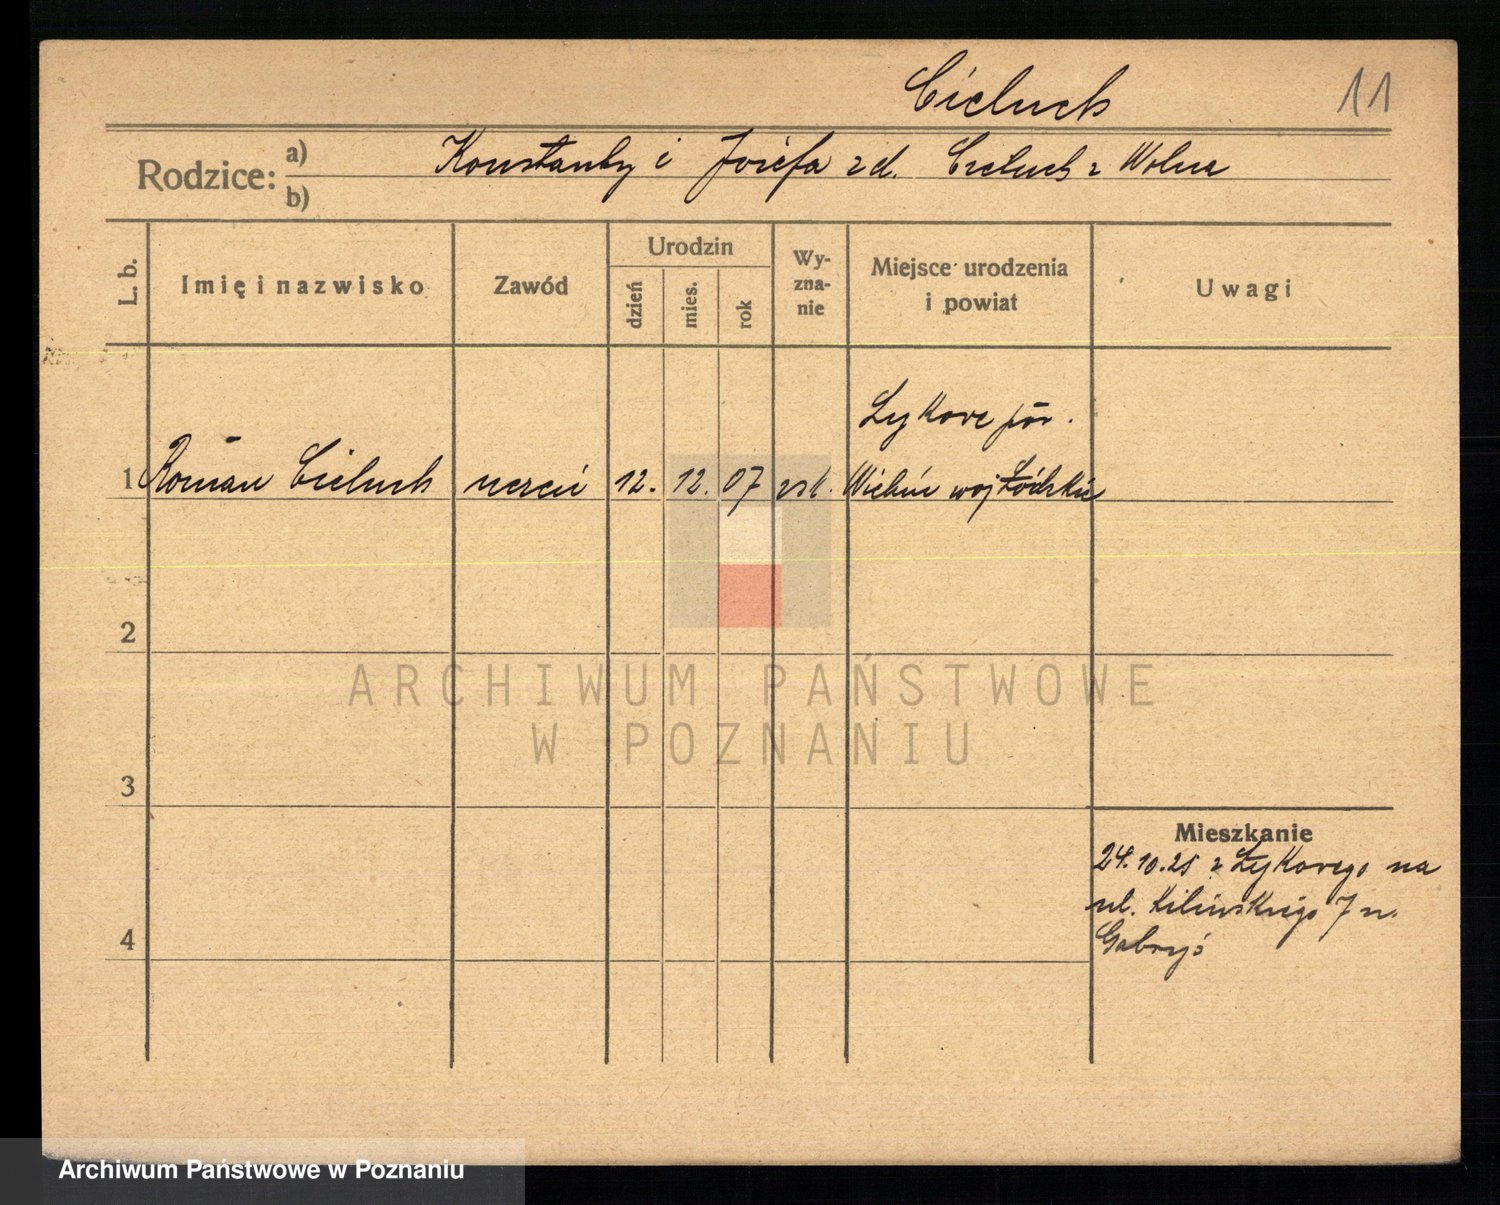 Cieluch
11
Rodzice: a)
b)
Konstanty i Józefa zd. Cieluch z Wolna
L. b.
Imię i nazwisko
Zawód
Urodzin
dzień
mies.
rok
Wy-
zna-
nie
Miejsce urodzenia
i powiat
Uwagi
Łykowe pow.
1 Roman Cieluch uczeń 12. 12. 07 rzk. Wieluń woj Łódzkie
2
3
4
Mieszkanie
24.10.25 z Łykowego na
ul. Kilińskiego 7 u.
Gabryś
ARCHIWUM PAŃSTWOWE
W POZNANIU
Archiwum Państwowe w Poznaniu